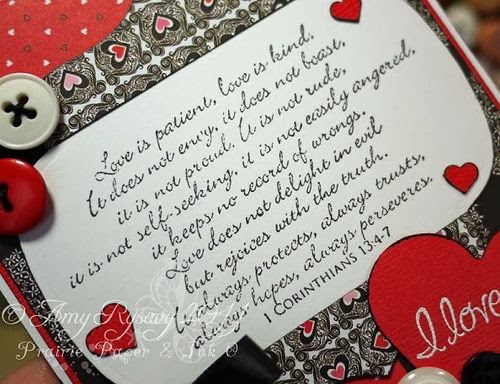 Love is patient, love is kind.
It does not envy, it does not boast,
it is not proud. It is not rude,
it is not self-seeking, it is not easily angered,
it keeps no record of wrongs.
Love does not delight in evil
but rejoices with the truth.
It always protects, always trusts,
always hopes, always perseveres.
1 CORINTHIANS 13:4-7
I love
© Amy Rysavy
Prairie Paper & Ink ©